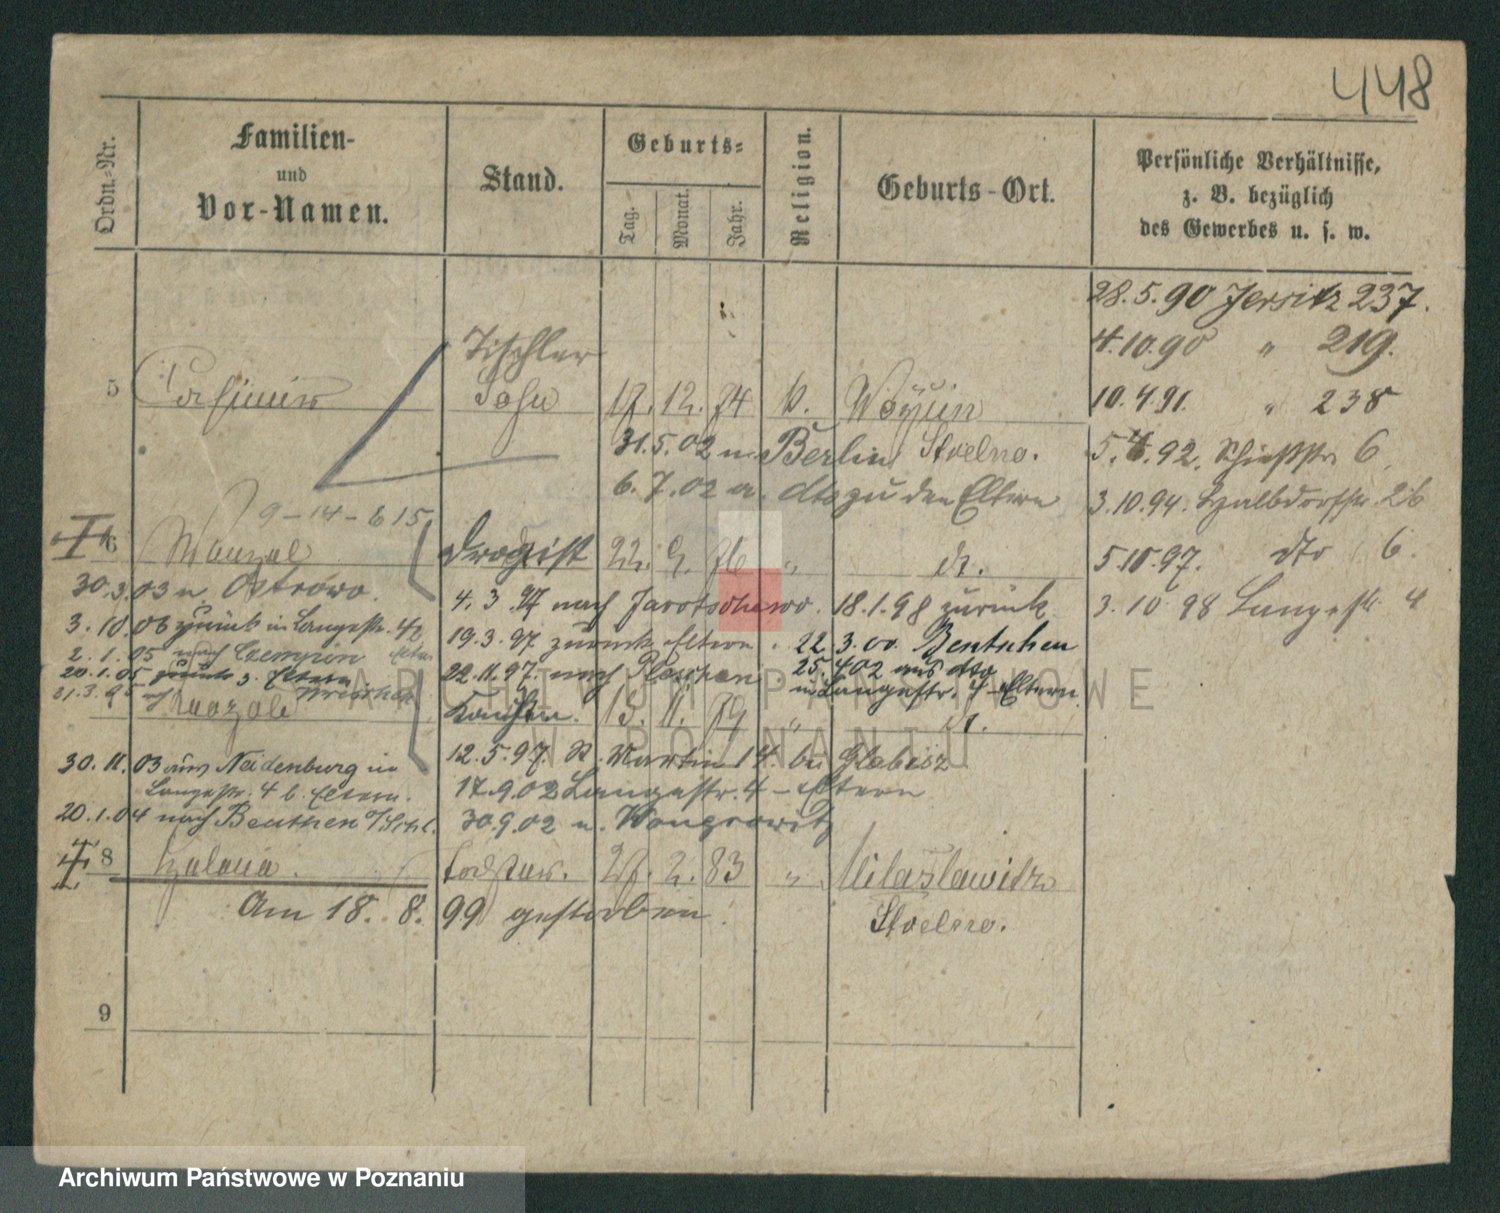 448
Ordn.-Nr.
Familien-
und
Vor-Namen.
Stand.
Geburts-
Tag.
Monat.
Jahr.
Religion.
Geburts-Ort.
Persönliche Verhältnisse,
z. B. bezüglich
des Gewerbes u. s. w.
28.5.90 Jersitz 237.
4.10.90 " 219.
10.4.91. " 238
5 Casimir Tischler Sohn 17. 12. 74 k.
31.5.02 n. Berlin Stoelno.
5. 92. Schießstr. 6
6.7.02 a. dto zu den Eltern
3.10.94. Halbdorfstr. 26
9-14-615
6 Drogist 22. 9. 76 "
5.10.97. dto 6.
30.3.03 n. Ostrowo.
4.3.97 nach Jarotschewo. 18.1.98 zurück
3.10 98 Langestr. 4
3.10.03 zurück in Langestr. 42
19.3.97 zurück Eltern. 22.3.00 Bentschen
2.1.05 nach
20.1.05 zurück z. Eltern
22.11.97. nach Pleschen 25.4.02 aus dto
in Langestr. 4 - Eltern.
31.3.95 n. Wreschen
15. 11. 79 "
30.11.03 aus Neidenburg in
Langestr. 4 b. Eltern.
12.5.97. St. Martin 14. bei Glabisz
17.9.02 Langestr. 4 - Eltern
20.1.04 nach Beuthen o/Schl.
30.9.02 n. Wongrowitz
8 Helena. Tochter. 27. 2. 83 " Miloslawitz
Am 18. 8. 99 gestorben.
Stoelno.
9
ARCHIWUM PAŃSTWOWE
W POZNANIU
Archiwum Państwowe w Poznaniu